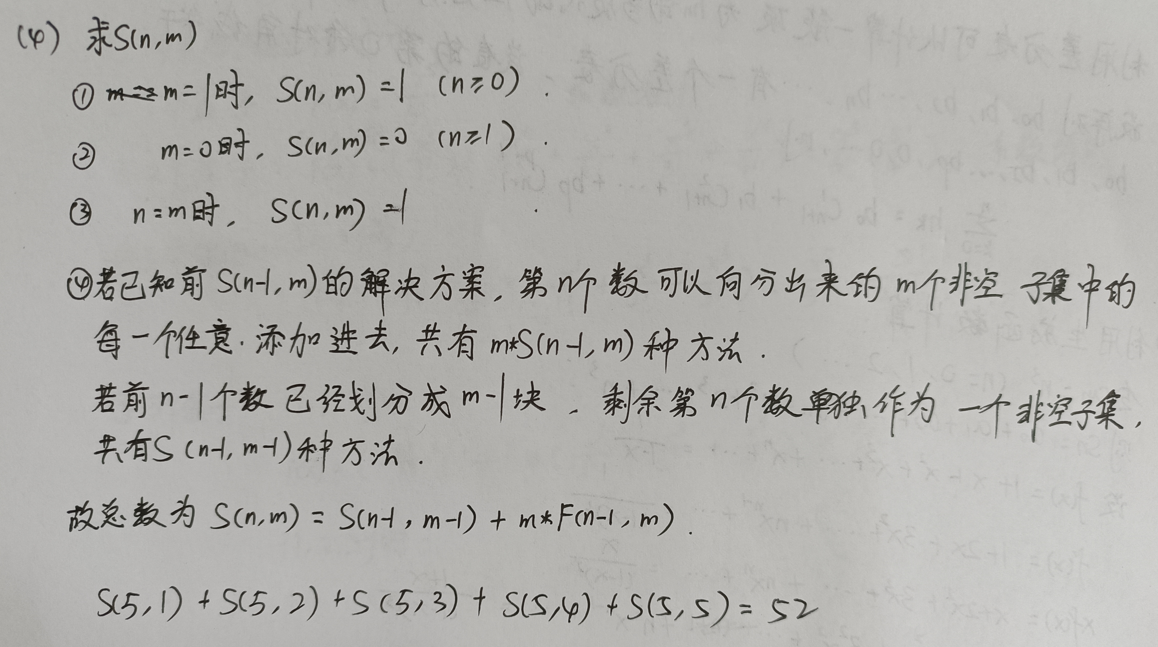 (4) 求S(n,m)
① m=1时, S(n,m)=1 (n≥0).
② m=0时, S(n,m)=0 (n≥1).
③ n=m时, S(n,m)=1 .
④若已知前S(n-1,m)的解决方案,第n个数可以向分出来的m个非空子集中的
每一个任意.添加进去,共有m*S(n-1,m)种方法.
若前n-1个数已经划分成m-1块,剩余第n个数单独作为一个非空子集,
共有S(n-1,m-1)种方法.
故总数为 S(n,m) = S(n-1,m-1) + m*F(n-1,m).
S(5,1) + S(5,2) + S(5,3) + S(5,4) + S(5,5) = 52